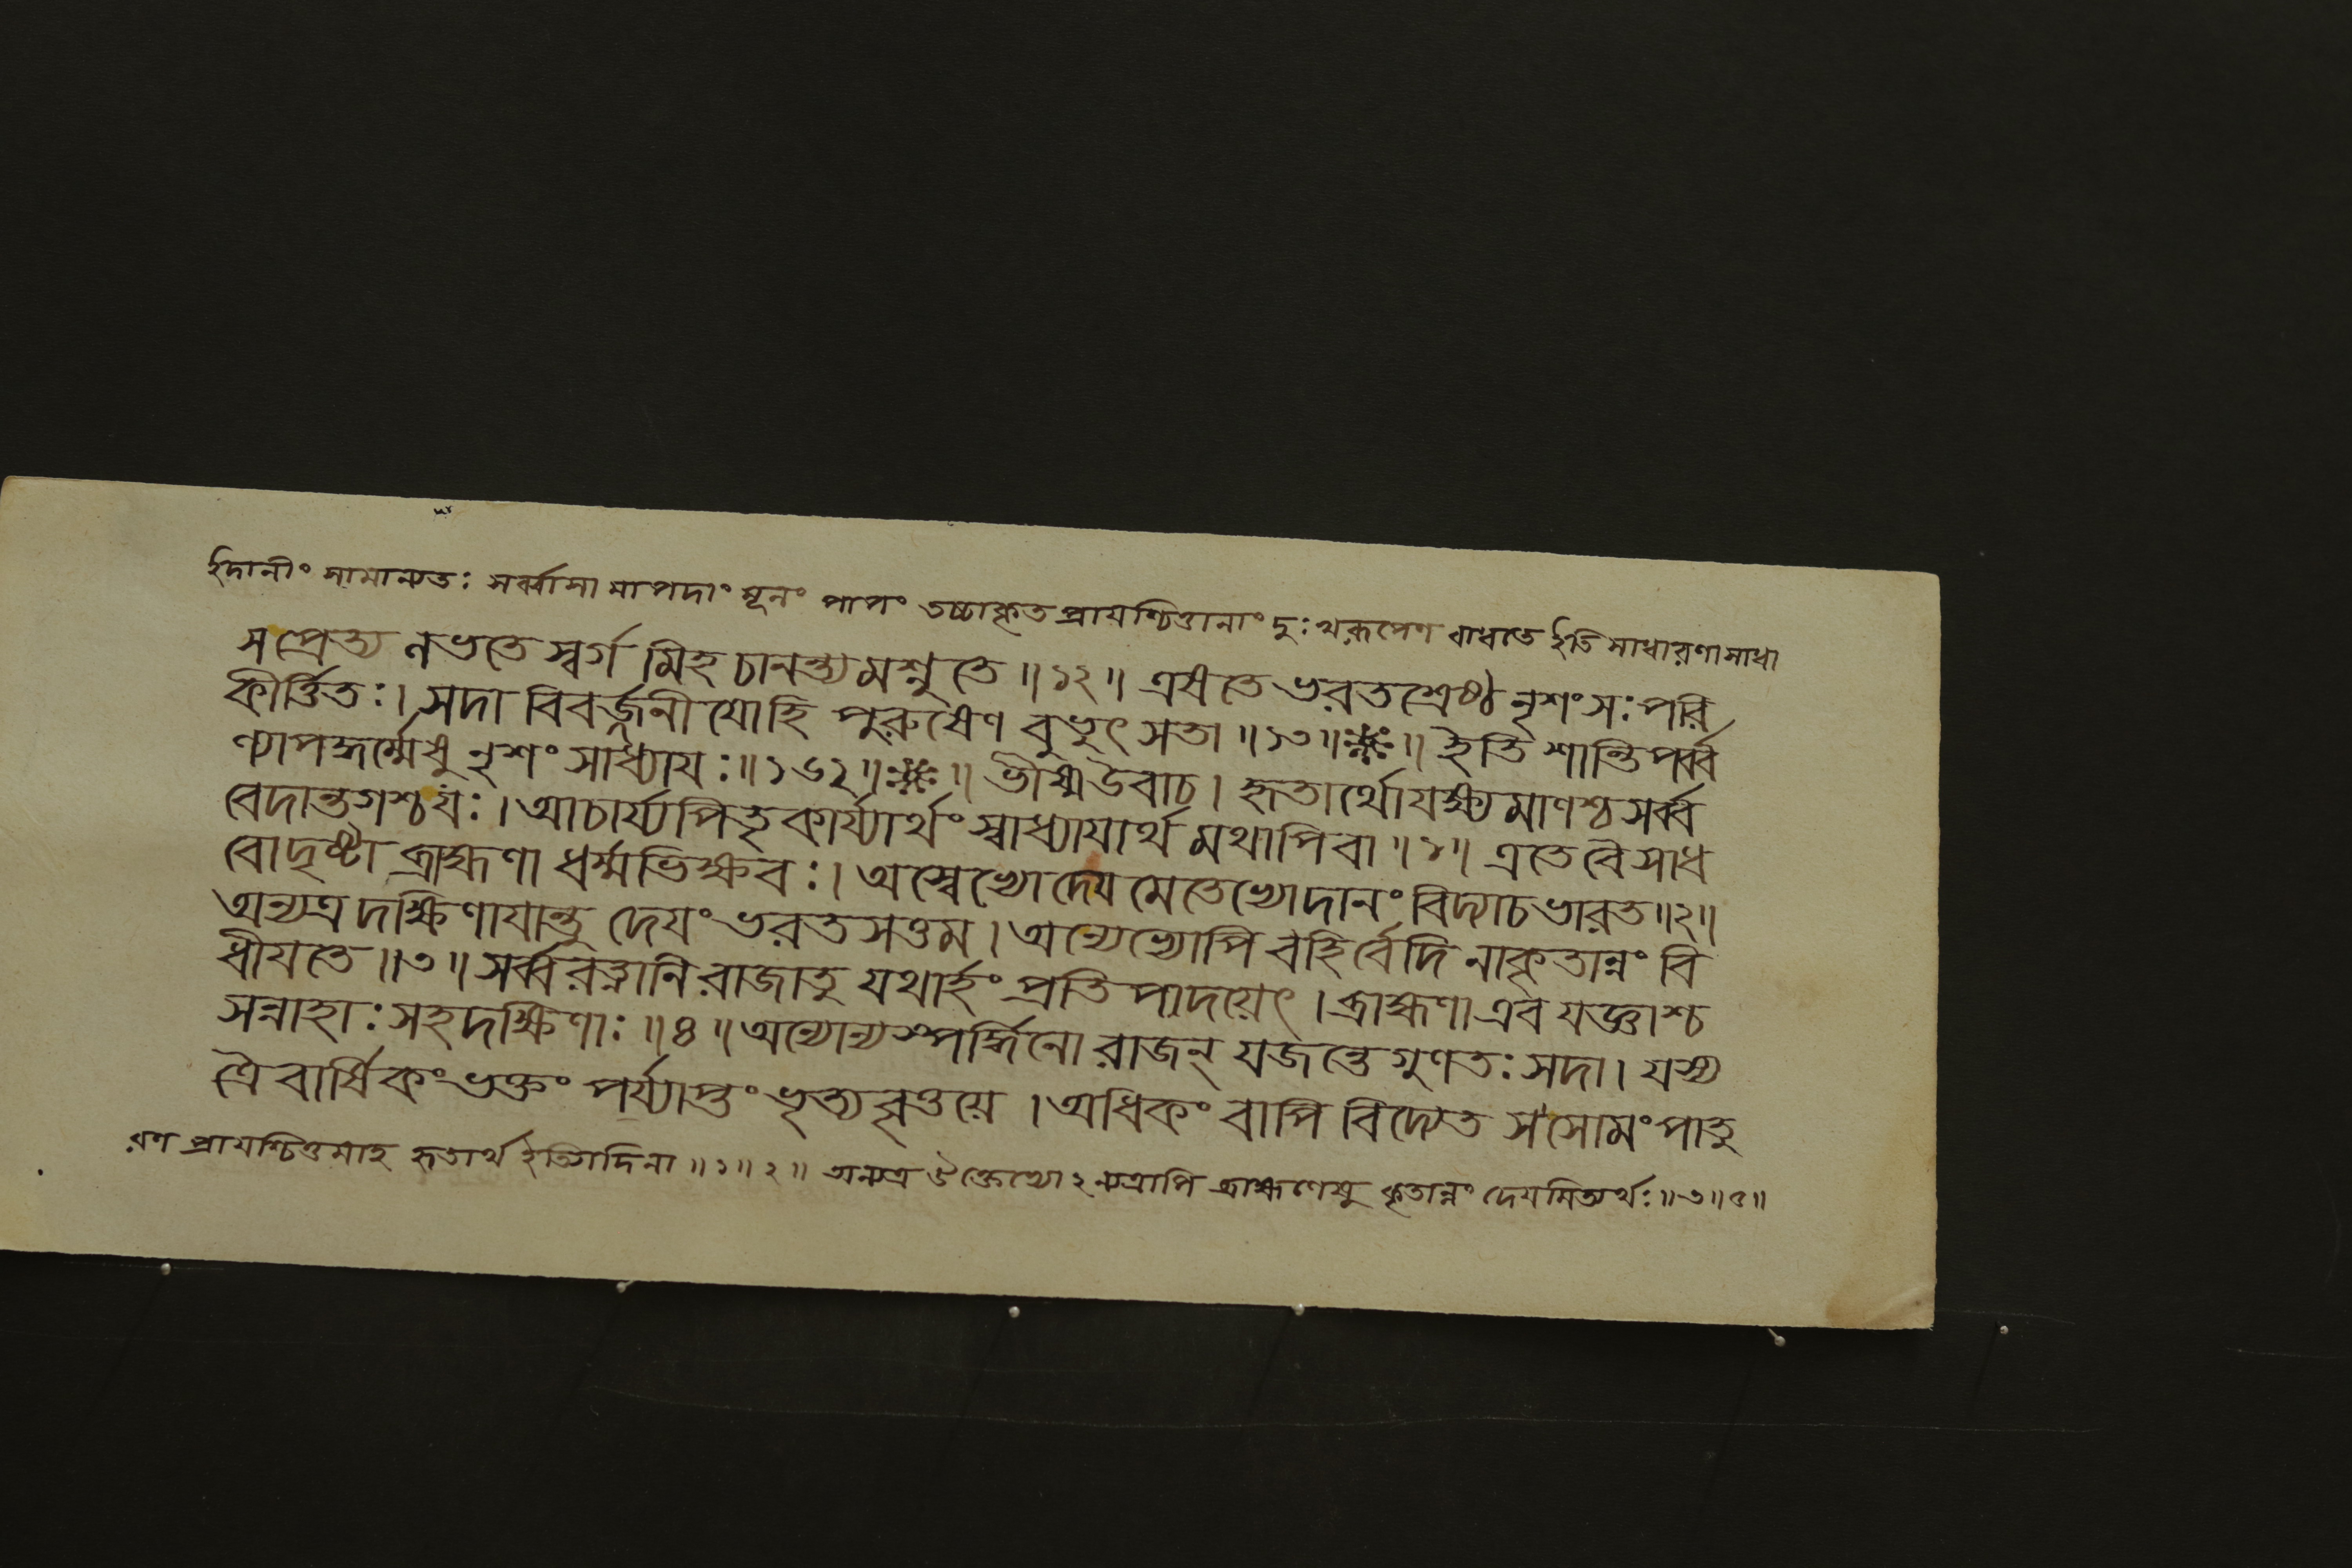 ইদানীং সামান্যতঃ সর্ব্বাসামাপদাং মূলং পাপং তচ্চাকৃতপ্রাযশ্চিত্তানাং দুঃখরূপেণ বাধতে ইতি সাধারণাসাধা
স প্রেত্য লভতে স্বর্গমিহ চানন্ত্যমশ্নুতে ॥ ১২ ॥ এষ তে ভরতশ্রেষ্ঠ নৃশংসঃ পরি
কীর্ত্তিতঃ । সদা বিবর্জ্জনীযো হি পুরুষেণ বুভুৎসতা ॥ ১৩ ॥ ※ ॥ ইতি শান্তিপর্ব্ব
ণ্যাপদ্ধর্ম্মেষু নৃশংসাধ্যাযঃ ॥ ১৬২ ॥ ※ ॥ ভীষ্ম উবাচ । হৃতার্থো যক্ষ্যমাণশ্চ সর্ব্ব
বেদান্তগশ্চ যঃ । আচার্য্যপিতৃকার্য্যার্থং স্বাধ্যাযার্থমথাপি বা ॥ ১ ॥ এতে বৈ সাধ
বো দৃষ্টা ব্রাহ্মণা ধর্ম্মভিক্ষবঃ । অস্বেভ্যো দেযমেতেভ্যো দানং বিদ্যা চ ভারত ॥ ২ ॥
অন্যত্র দক্ষিণাযান্তু দেযং ভরতসত্তম । অন্যেভ্যোপি বহির্ব্বেদি নাকৃতান্নং বি
ধীযতে ॥ ৩ ॥ সর্ব্বরত্নানি রাজা তু যথার্হং প্রতিপাদয়েৎ । ব্রাহ্মণা এব যজ্ঞাশ্চ
সন্নাহাঃ সহদক্ষিণাঃ ॥ ৪ ॥ অন্যোন্যস্পর্দ্ধিনো রাজন্ যজন্তে গুণতঃ সদা । যস্য
ত্রৈবার্ষিকং ভক্তং পর্য্যাপ্তং ভৃত্যবৃত্তয়ে । অধিকং বাপি বিদ্যেত স সোমং পাতু
রণ প্রাযশ্চিত্তমাহ হৃতার্থ ইত্যাদিনা ॥ ১ ॥ ২ ॥ অন্যত্র উক্তেভ্যোঽন্যত্রাপি ব্রাহ্মণেষু কৃতান্নং দেযমিত্যর্থঃ ॥ ৩ ॥ ৪ ॥